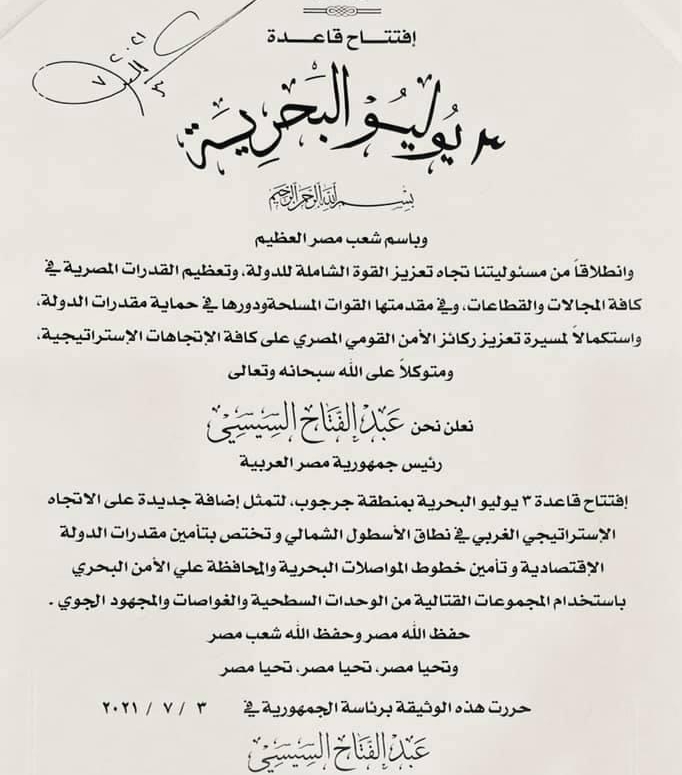 إفتتاح قاعدة
٣ يوليو البحرية
بسم الله الرحمن الرحيم
وباسم شعب مصر العظيم
وانطلاقاً من مسئوليتنا تجاه تعزيز القوة الشاملة للدولة، وتعظيم القدرات المصرية في
كافة المجالات والقطاعات، وفي مقدمتها القوات المسلحة ودورها في حماية مقدرات الدولة،
واستكمالاً لمسيرة تعزيز ركائز الأمن القومي المصري على كافة الإتجاهات الإستراتيجية،
ومتوكلاً على الله سبحانه وتعالى
نعلن نحن عبد الفتاح السيسي
رئيس جمهورية مصر العربية
إفتتاح قاعدة ٣ يوليو البحرية بمنطقة جرجوب، لتمثل إضافة جديدة على الاتجاه
الإستراتيجي الغربي في نطاق الأسطول الشمالي وتختص بتأمين مقدرات الدولة
الإقتصادية وتأمين خطوط المواصلات البحرية والمحافظة علي الأمن البحري
باستخدام المجموعات القتالية من الوحدات السطحية والغواصات والمجهود الجوي .
حفظ الله مصر وحفظ الله شعب مصر
وتحيا مصر، تحيا مصر، تحيا مصر
حررت هذه الوثيقة برئاسة الجمهورية في ٣ / ٧ / ٢٠٢١
عبد الفتاح السيسي